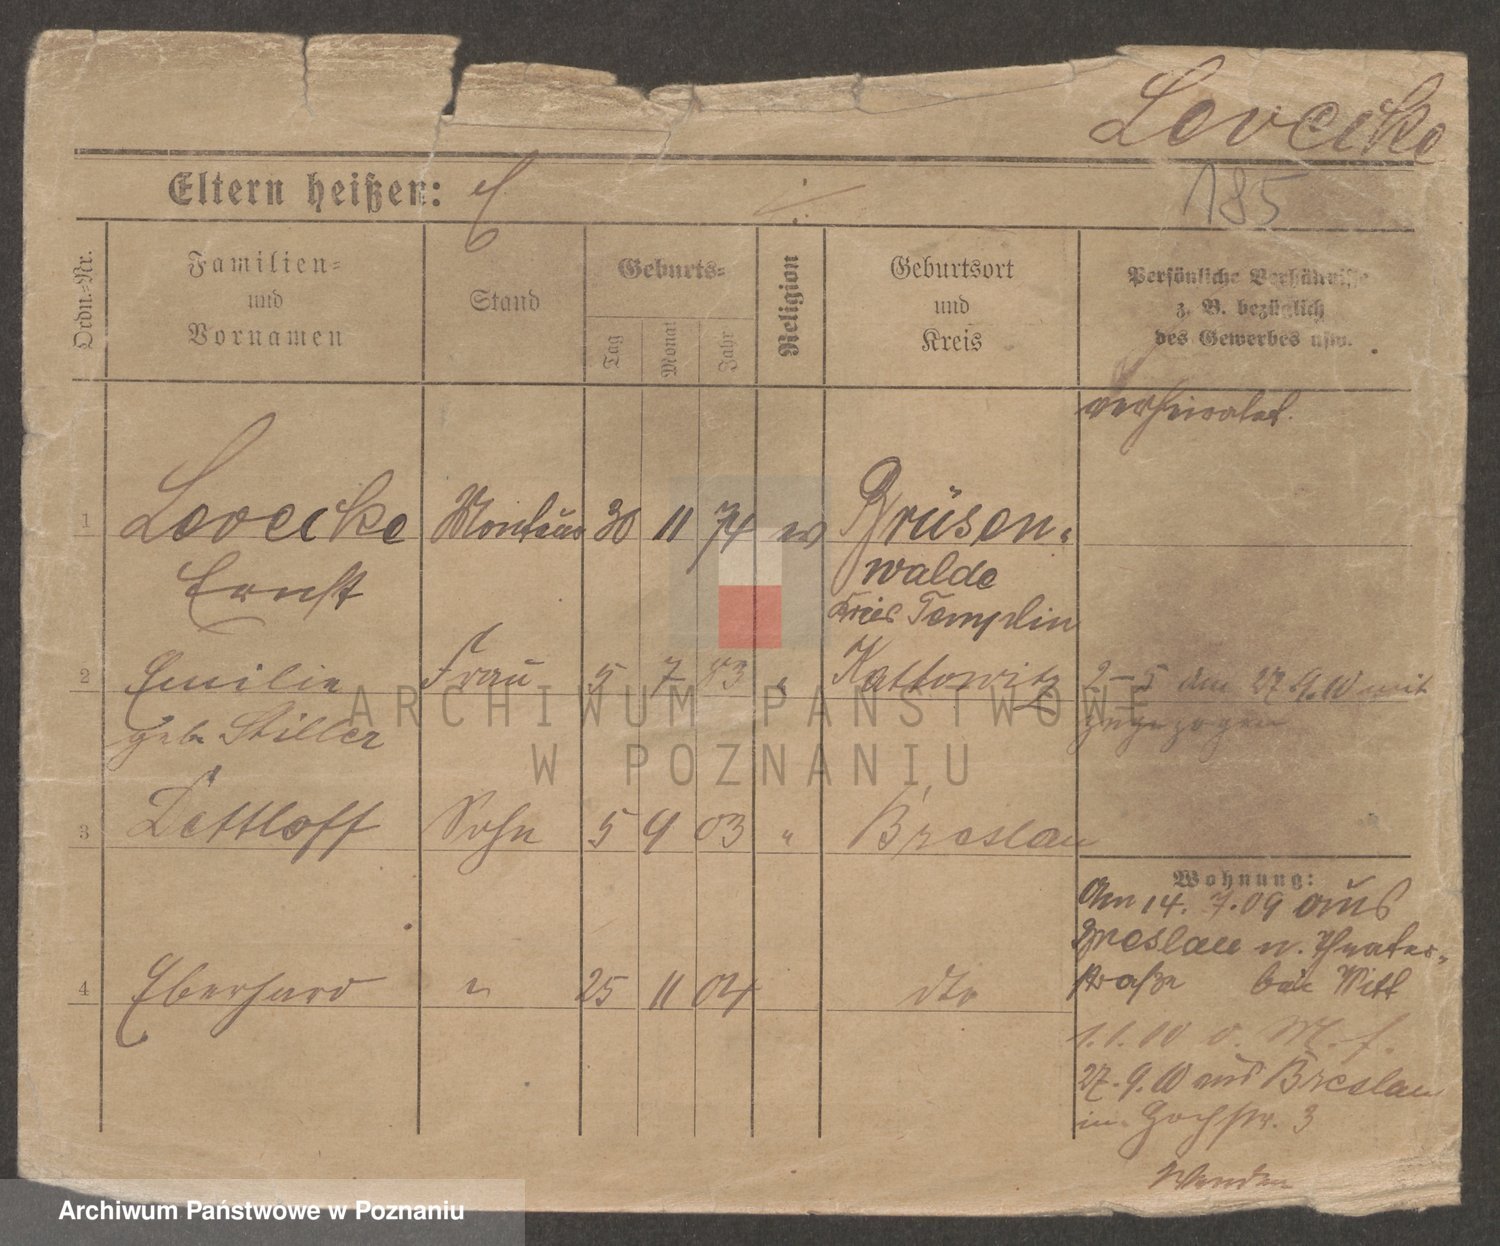 Lovecke
185
Eltern heißen:
Ordn.-Nr.
Familien-
und
Vornamen
Stand
Geburts-
Tag
Monat
Jahr
Religion
Geburtsort
und
Kreis
Persönliche Verhältnisse
z. B. bezüglich
des Gewerbes usw.
verheiratet.
1 Lovecke Monteur 30 11 74 ev Brüsen-
Ernst walde
Kreis Templin
2 Emilie Frau 5 7 83 " Kattowitz 2–5 am 27.9.10 mit
geb Stiller zugezogen
3 Dettloff Sohn 5 9 03 " Breslau
Wohnung:
Am 14.7.09 aus
Breslau n. Theater-
straße bei Witt
4 Eberhard " 25 11 04 dto
1.1.10 v. M. f.
27.9.10 aus Breslau
in Hochstr. 3
Wenden
ARCHIWUM PAŃSTWOWE
W POZNANIU
Archiwum Państwowe w Poznaniu